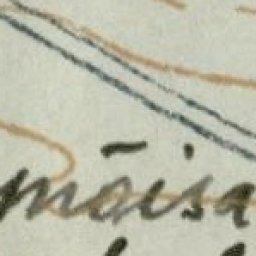 mõisa